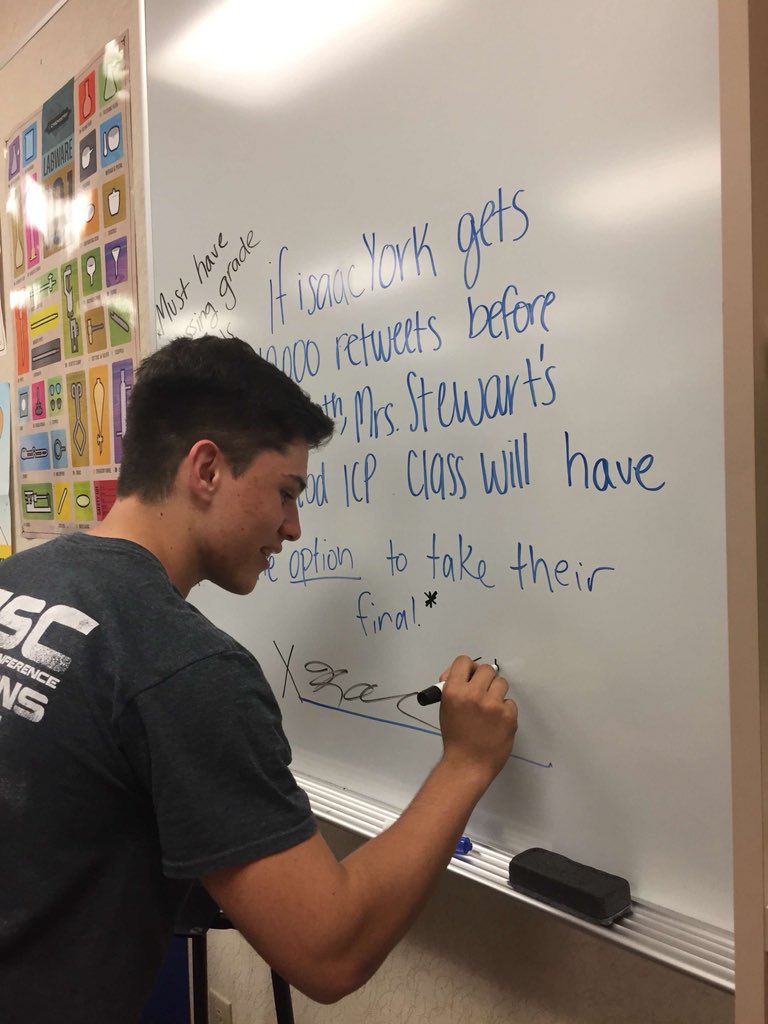 LABWARE
Must have
grade
if isaac York gets
retweets before
Mrs. Stewart's
ICP Class will have
option to take their
final.*
X
SC
NFERENCE
NS